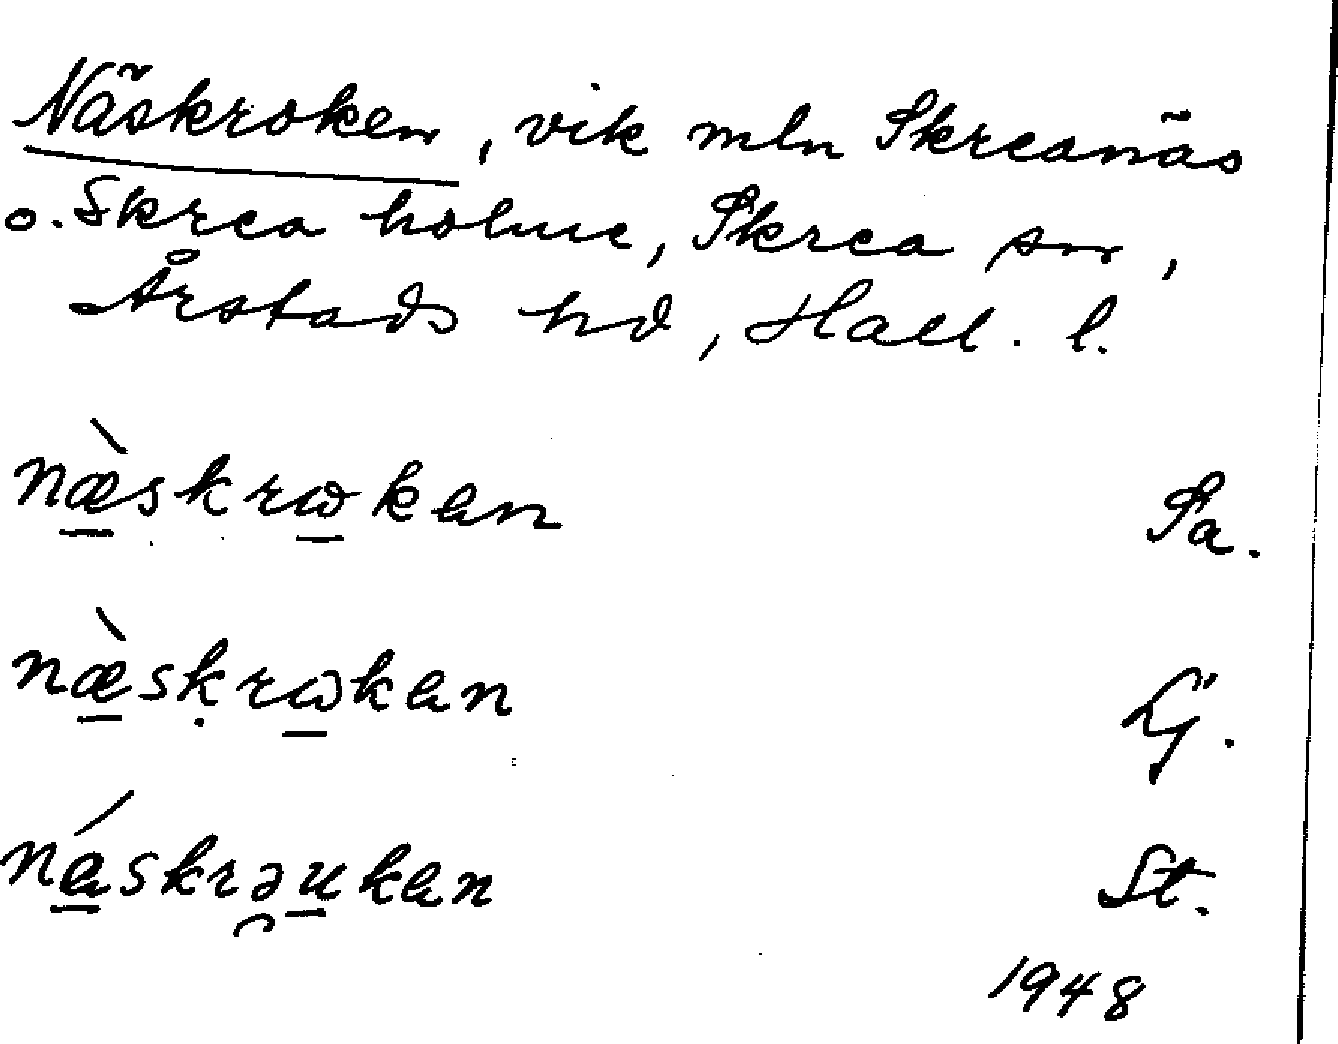 Näskroken, vik mln Skreanäs
o. Skrea holme, Skrea sn,
Årstads hd, Hall. l.
næ̀skrωkan Sa.
næ̀sḳrωkan Lj.
náskrəukan St.
1948